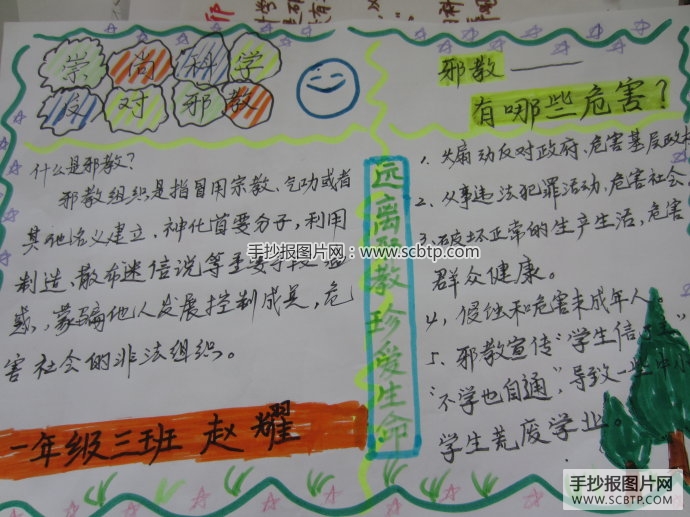 崇尚科学
反对邪教
什么是邪教?
邪教组织是指冒用宗教、气功或者
其他名义建立、神化首要分子,利用
制造、散布迷信说等歪
惑、蒙骗他人发展控制成员,危
害社会的非法组织。
一年级三班 赵耀
远离邪教珍爱生命
邪教——
有哪些危害?
1、煽动反对政府,危害基层政权
2、从事违法犯罪活动,危害社会
3、破坏正常的生产生活,危害
群众健康。
4、侵蚀和危害未成年人。
5、邪教宣传“学生信
“不学也自通”,导致一些中小
学生荒废学业。
手抄报图片网:www.scbtp.com
手抄报图片网
WWW.SCBTP.COM